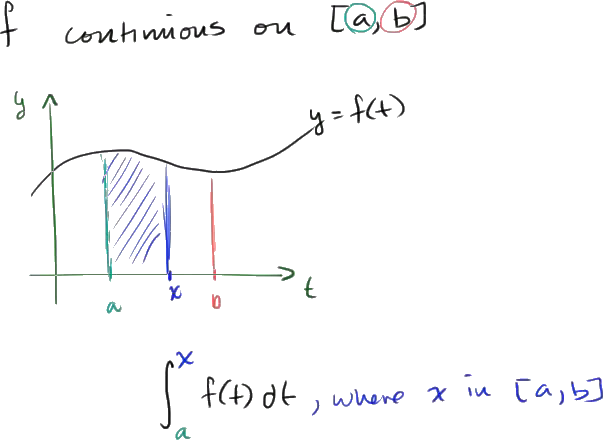 f continuous on [a, b]
y
y = f(t)
a
x
b
t
∫ₐˣ f(t) dt, where x in [a, b]